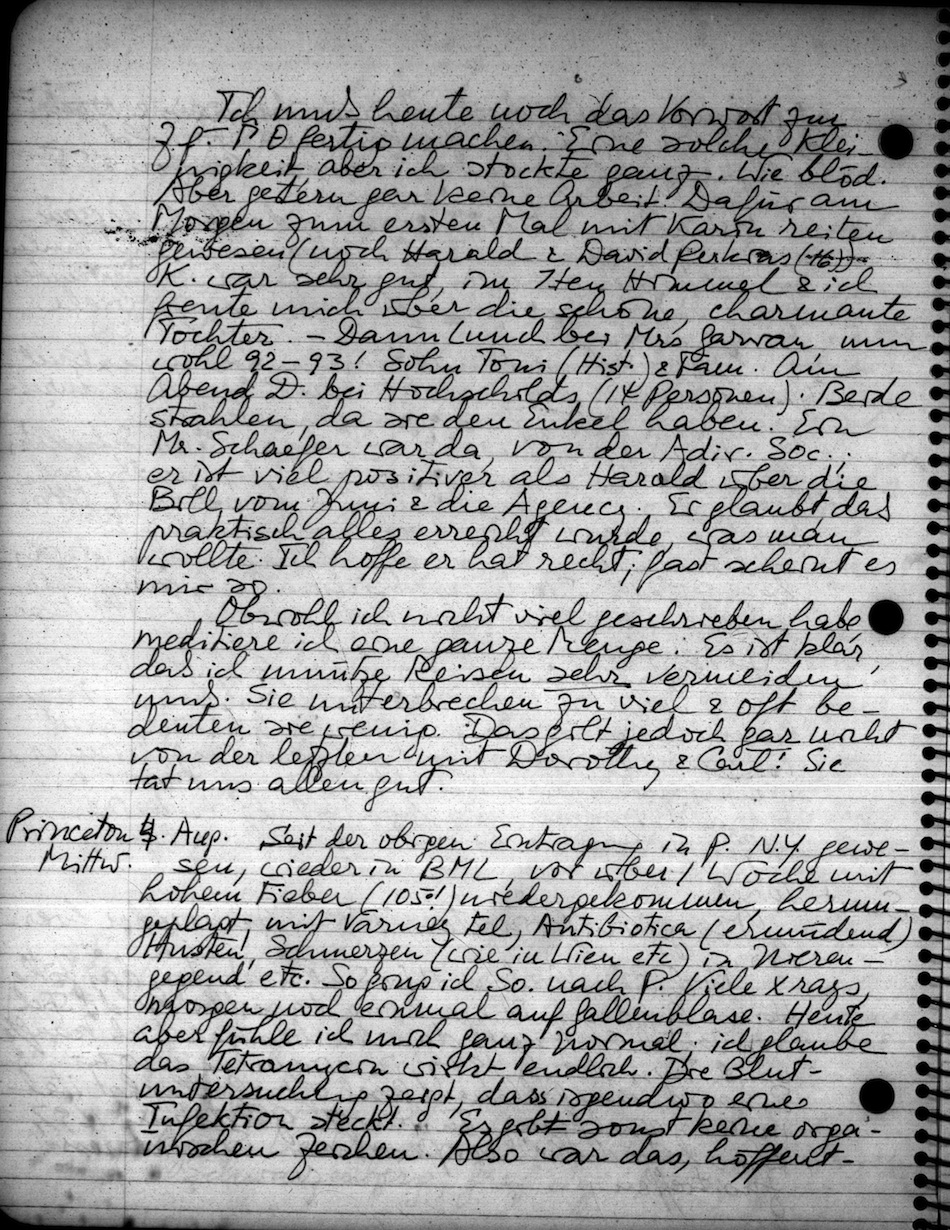 Ich muß heute noch das Vorwort zum
Z. f. P O fertig machen. Eine solche Klei-
nigkeit, aber ich stockte ganz. Wie blöd.
Aber gestern gar keine Arbeit. Dafür am
Morgen zum ersten Mal mit Karin reiten
gewesen (noch Harald & David Perkins (16))
K. war sehr gut, im 7ten Himmel & ich
freute mich über die schöne, charmante
Tochter. – Dann Lunch bei Mrs Garvan nun
wohl 92–93! Sohn Toni (Hist.) & Fam. Am
Abend D. bei Hochschilds (14 Personen). Beide
strahlen, da sie den Enkel haben. Ein
Mr. Schaefer war da, von der Adir. Soc.:
er ist viel positiver als Harald über die
Bill vom Juni & die Agency. Er glaubt daß
praktisch alles erreicht wurde, was man
wollte. Ich hoffe er hat recht; fast scheint es
mir so.
Obwohl ich nicht viel geschrieben habe
meditiere ich eine ganze Menge. Es ist klar,
daß ich unnütze Reisen sehr vermeiden
muß. Sie unterbrechen zu viel & oft be-
deuten sie wenig. Das gilt jedoch gar nicht
von der letzten mit Dorothy & Carl! Sie
tat uns allen gut.
Princeton 4. Aug. Seit der obigen Eintragung in P. N.Y. gewe-
Mittw. sen, wieder in BML, vor über 1 Woche mit
hohem Fieber (105!) niedergekommen, herum-
geplagt, mit Varney tel, Antibiotica (ermüdend)
Husten, Schmerzen (wie in Wien etc) in Nieren-
gegend etc. So ging ich So. nach P. Viele x rays,
morgen noch einmal auf Gallenblase. Heute
aber fühle ich mich ganz normal; ich glaube
das Tetramycin wirkt endlich. Die Blut-
untersuchung zeigt, dass irgendwo eine
Infektion steckt. Es gibt sonst keine orga-
nischen Zeichen. Also war das, hoffent-